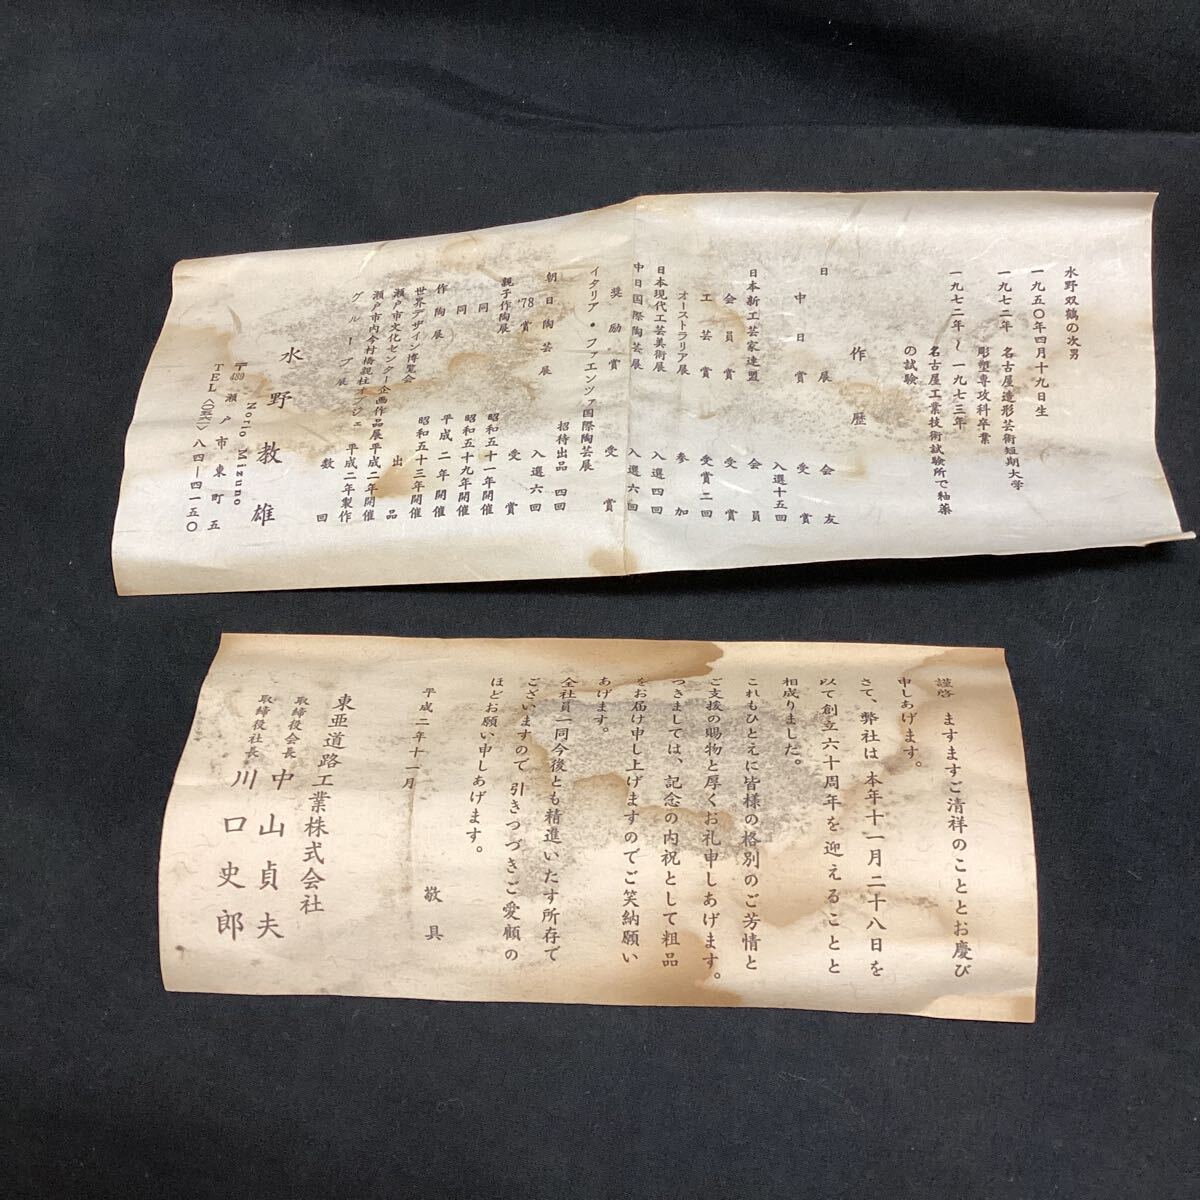 水野双鶴の次男
一九五〇年四月十九日生
一九七二年 名古屋造形芸術短期大学
彫塑専攻科卒業
一九七二年〜一九七三年
名古屋工業技術試験所で釉薬
の試験
作歴
日展 会友
中日賞 受賞
入選十五回
日本新工芸家連盟 会員
会員賞 受賞
工芸賞 受賞二回
オーストラリア展 参加
日本現代工芸美術展 入選四回
中日国際陶芸展 入選六回
奨励賞 受賞
イタリア・ファエンツァ国際陶芸展
招待出品 四回
朝日陶芸展 入選六回
'78賞 受賞
親子作陶展 昭和五十一年開催
同 昭和五十九年開催
同 平成二年開催
作陶展 昭和五十三年開催
世界デザイン博覧会 出品
瀬戸市文化センター企画作品展 平成一年開催
瀬戸市内今村橋親柱オブジェ 平成二年製作
グループ展 数回
水野教雄
Norio Mizuno
〒489 瀬戸市東町五
TEL(〇五六一)八四―四一五〇
謹啓 ますますご清祥のこととお慶び
申しあげます。
さて、弊社は本年十一月二十八日を
以て創立六十周年を迎えることと
相成りました。
これもひとえに皆様の格別のご芳情と
ご支援の賜物と厚くお礼申しあげます。
つきましては、記念の内祝として粗品
をお届け申し上げますのでご笑納願い
あげます。
全社員一同今後とも精進いたす所存で
ございますので 引きつづきご愛顧の
ほどお願い申しあげます。
敬具
平成二年十一月
東亜道路工業株式会社
取締役会長 中山貞夫
取締役社長 川口史郎